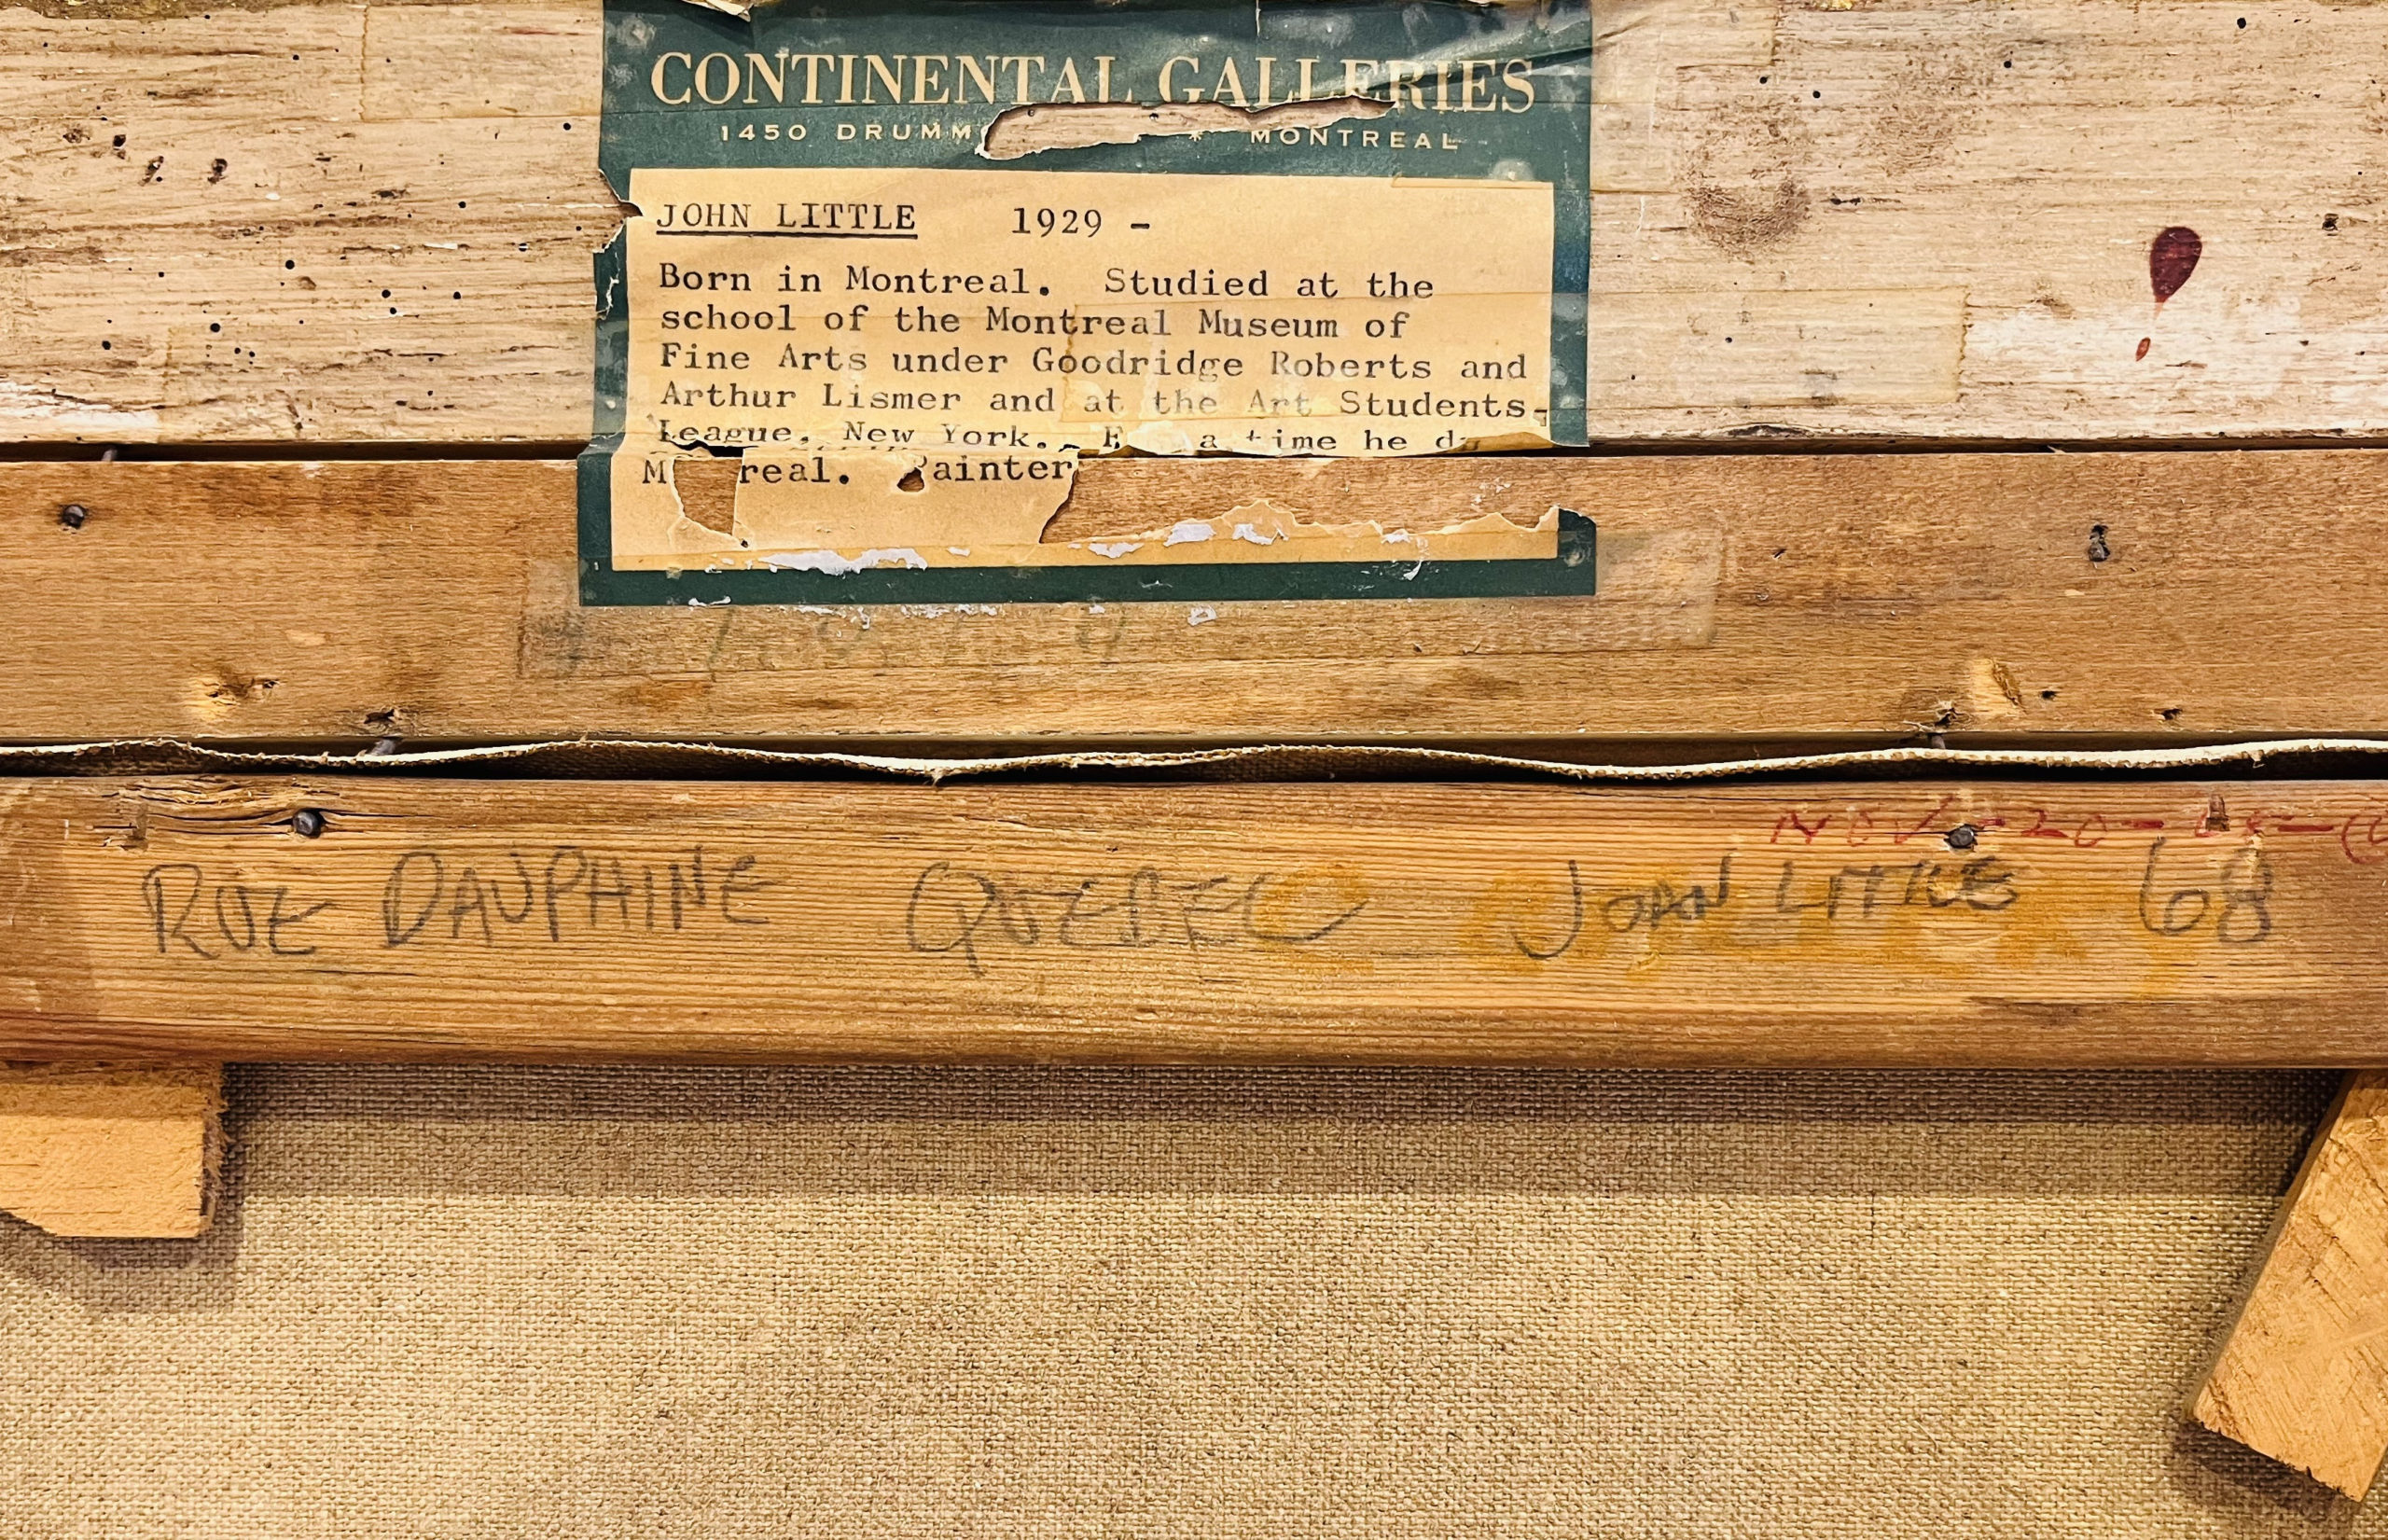 CONTINENTAL GALLERIES
1450 DRUMM * MONTREAL
JOHN LITTLE 1929 -
Born in Montreal. Studied at the
school of the Montreal Museum of
Fine Arts under Goodridge Roberts and
Arthur Lismer and at the Art Students
League, New York. a time he
real. ainter
NOV-20-
RUE DAUPHINE QUEBEC JOHN LITTLE 68